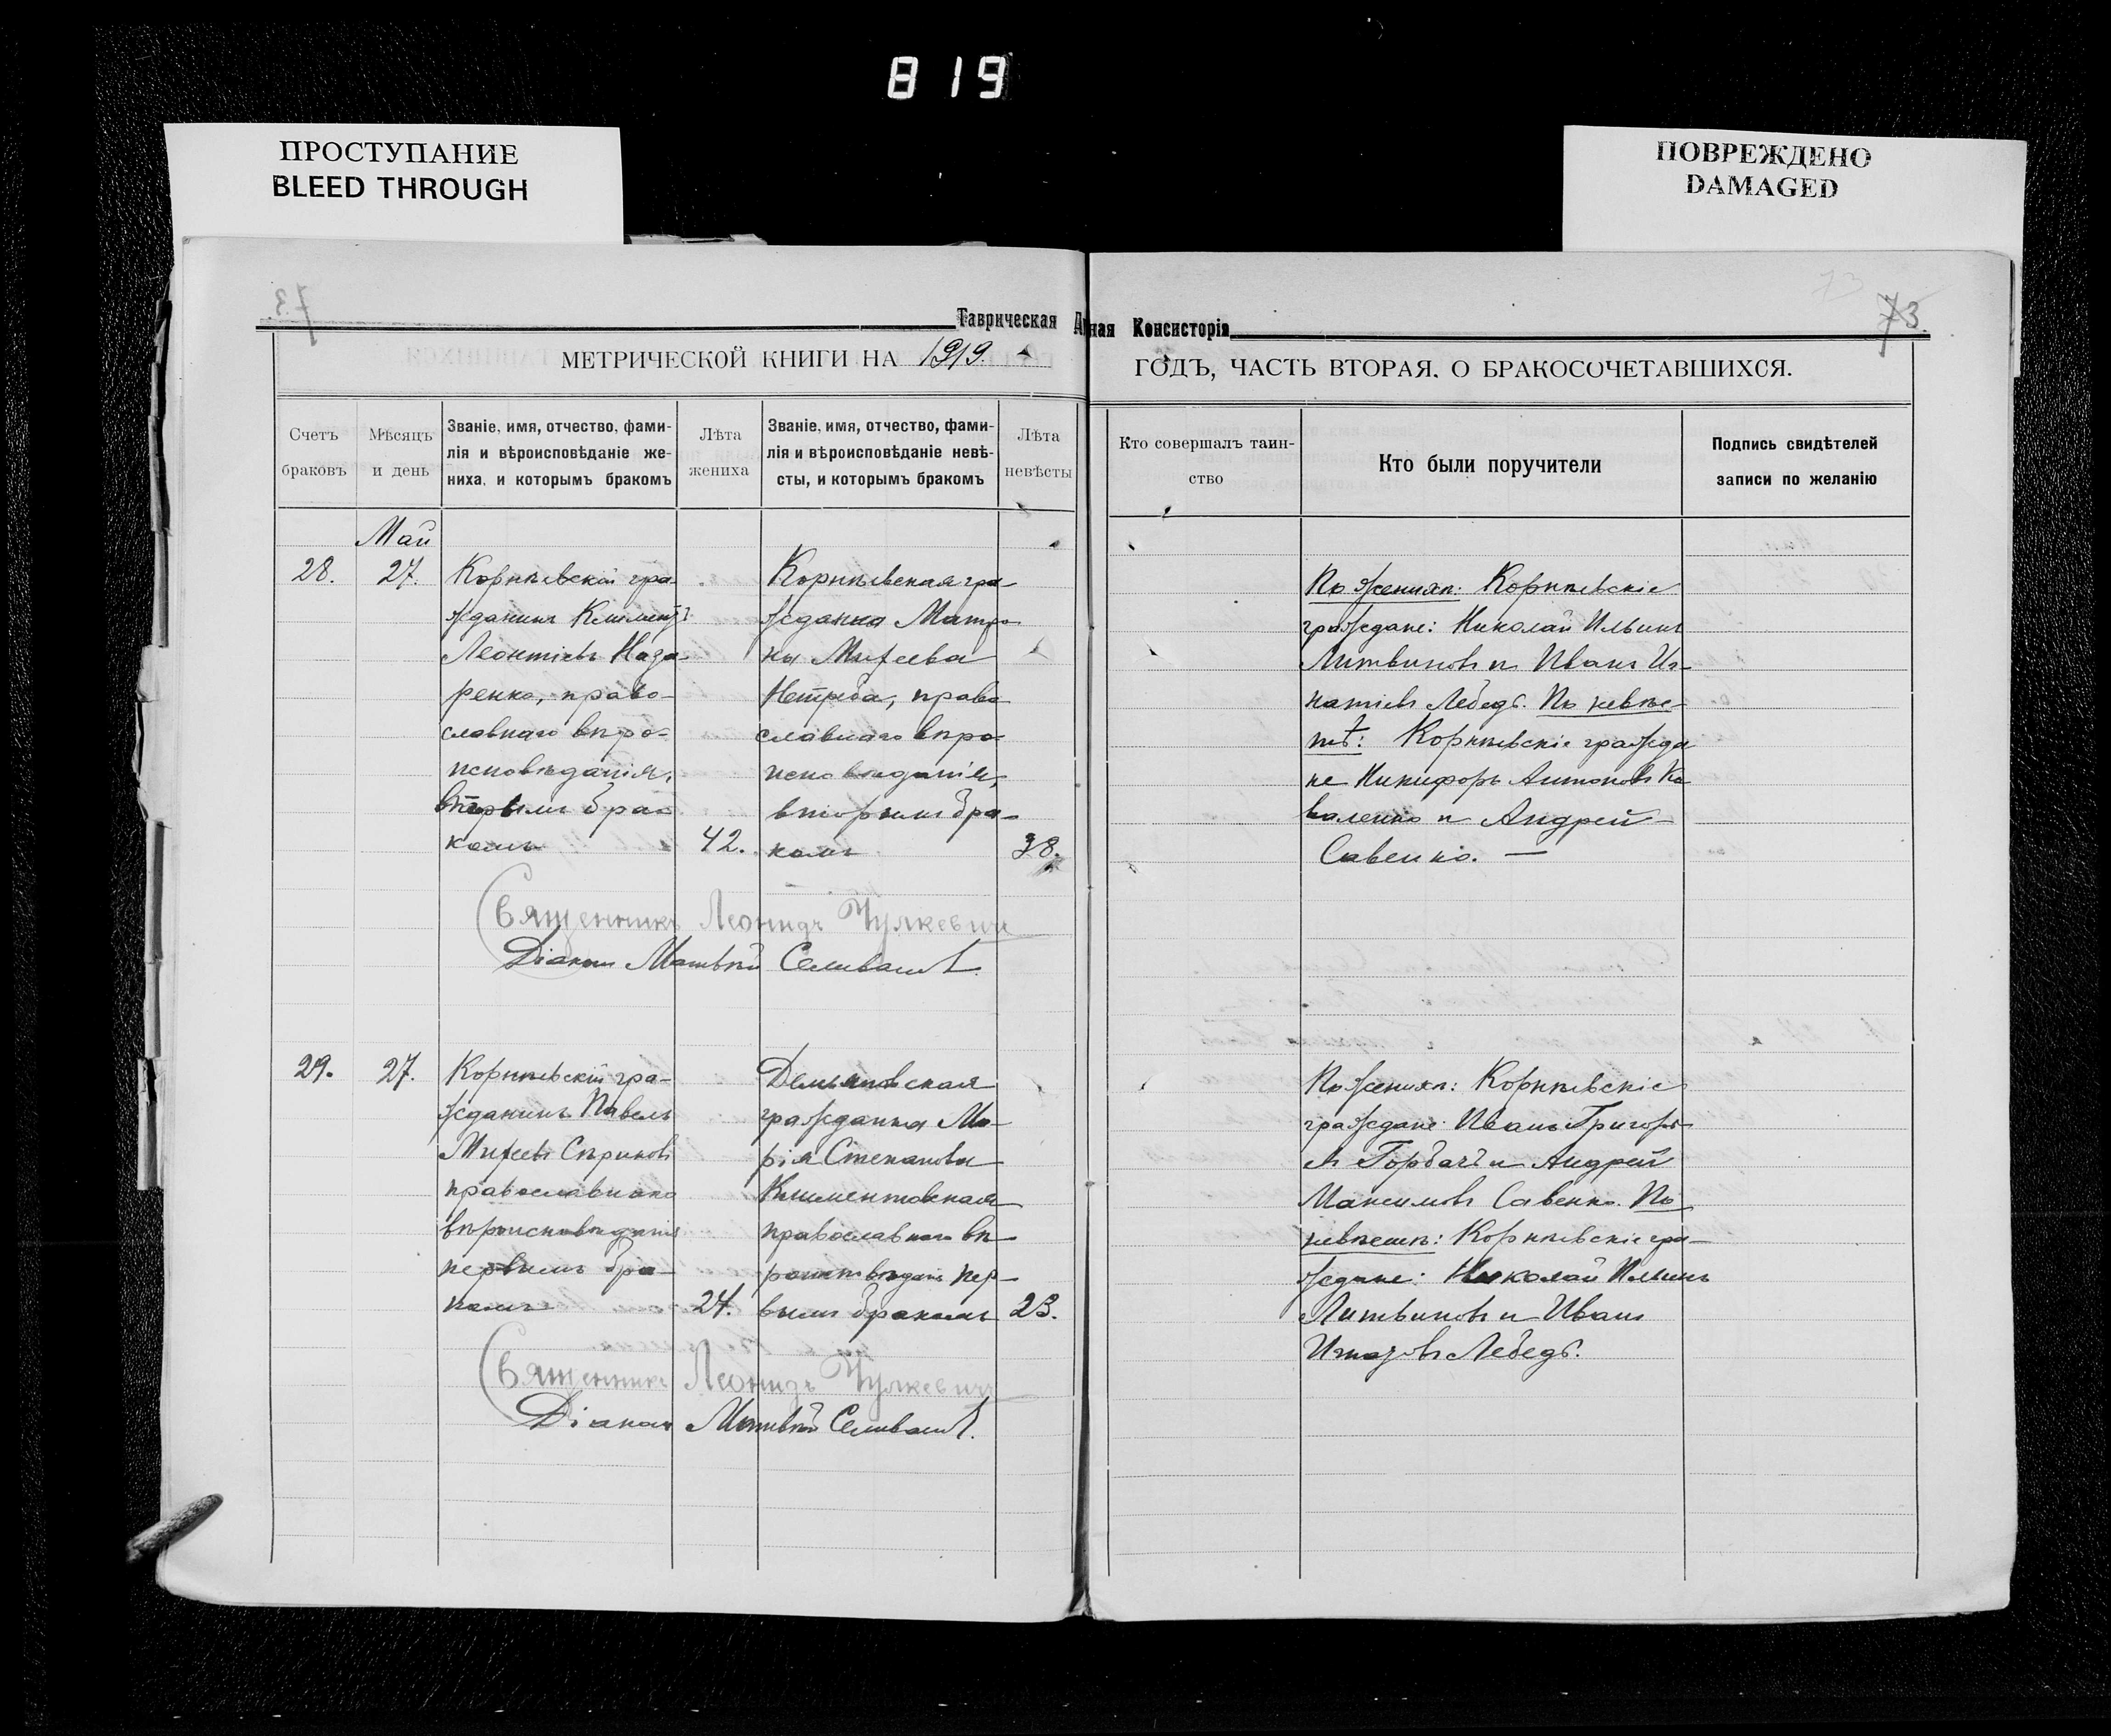 819
ПРОСТУПАНИЕ
BLEED THROUGH
ПОВРЕЖДЕНО
DAMAGED
73.
Таврическая
ная Консисторія
МЕТРИЧЕСКОЙ КНИГИ НА 1919.
ГОДЪ, ЧАСТЬ ВТОРАЯ. О БРАКОСОЧЕТАВШИХСЯ.
Счетъ
браковъ
Мѣсяцъ
и день
Званіе, имя, отчество, фами-
лія и вѣроисповѣданіе же-
ниха, и которымъ бракомъ
Лѣта
жениха
Званіе, имя, отчество, фами-
лія и вѣроисповѣданіе невѣ-
сты, и которымъ бракомъ
Лѣта
невѣсты
Кто совершалъ таин-
ство
Кто были поручители
Подпись свидѣтелей
записи по желанію
Май
28.
27.
Корнѣевскій гра-
жданинъ Климентъ
Леонтіевъ Наза-
ренко, право-
славнаго вѣро-
исповѣданія,
вторымъ бра-
комъ
42.
Корнѣевская гра-
жданка Матро-
на Михеева
Нетреба, право-
славнаго вѣро-
исповѣданія,
вторымъ бра-
комъ
38.
По женихѣ: Корнѣевскіе
граждане: Николай Ильинъ
Литвиновъ и Иванъ Иг-
натіевъ Лебедь. По невѣс-
тѣ: Корнѣевскіе гражда-
не Никифоръ Антоновъ Ко-
валенко и Андрей
Савенко. —
Священникъ Леонидъ Чулкевичъ
Діаконъ Матвѣй Селивановъ
29.
27.
Корнѣевскій гра-
жданинъ Павелъ
Михеевъ Сѣриковъ
православнаго
вѣроисповѣданія
первымъ бра-
комъ
24.
Демьяновская
гражданка Ма-
рія Степанова
Климентовская
православнаго вѣ-
роисповѣданія пер-
вымъ бракомъ
23.
По женихѣ: Корнѣевскіе
граждане: Иванъ Григорь-
евъ Горбачъ и Андрей
Максимовъ Савенко. По
невѣстѣ: Корнѣевскіе гра-
ждане: Николай Ильинъ
Литвиновъ и Иванъ
Лебедь.
Священникъ Леонидъ Чулкевичъ
Діаконъ Матвѣй Селивановъ.